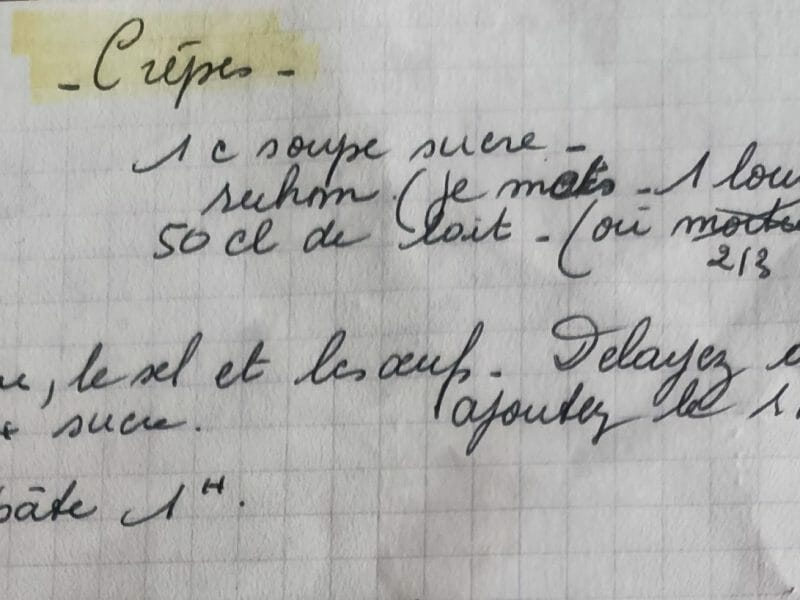 - Crêpes -
1 c soupe sucre -
ruhm. (je mets - 1 lou
50 cl de lait - (ou
2/3
, le sel et les œufs. Delayez
sucre. ajoutez le 1
pâte 1H.